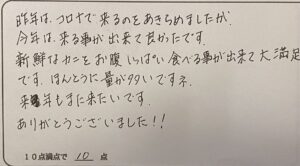 昨年は、コロナで来るのをあきらめましたが、
今年は、来る事が出来て良かったです。
新鮮なカニをお腹いっぱい食べる事が出来て大満足
です。ほんとうに量が多いですネ。
来年もまた来たいです。
ありがとうございました!!
10点満点で 10 点